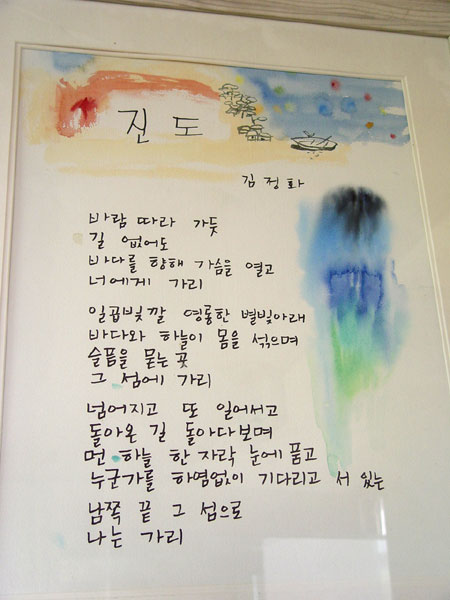 진도
김정화
바람 따라 가듯
길 없어도
바다를 향해 가슴을 열고
너에게 가리
일곱빛깔 영롱한 별빛아래
바다와 하늘이 몸을 섞으며
슬픔을 묻는 곳
그 섬에 가리
넘어지고 또 일어서고
돌아온 길 돌아다보며
먼 하늘 한 자락 눈에 품고
누군가를 하염없이 기다리고 서 있는
남쪽 끝 그 섬으로
나는 가리